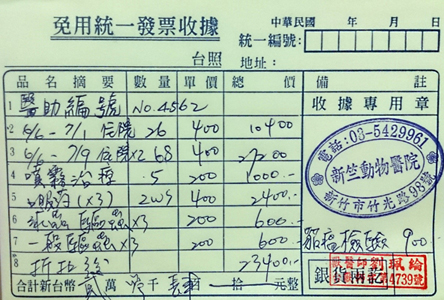 免用統一發票收據
中華民國 年 月 日
台照
統一編號:
地址:
品名摘要 數量 單價 總價 備註
1 醫助編號 No.4562
收據專用章
2 6/6-7/1 住院 26 400 10400
3 6/6-7/9 住院x2 68 400 27200
電話:03-5429961
新竺動物醫院
新竹市竹光路98號
4 噴霧治療 5 200 1000.-
5 (x3) 2ws 400 2400.-
6 驅蟲x3 200 600.-
7 一般驅蟲x3 200 600.-
檢驗 900.-
8 折扣 23400.-
銀貨兩訖
獸醫師劉
第4739號
合計新台幣 萬 仟 拾 元整